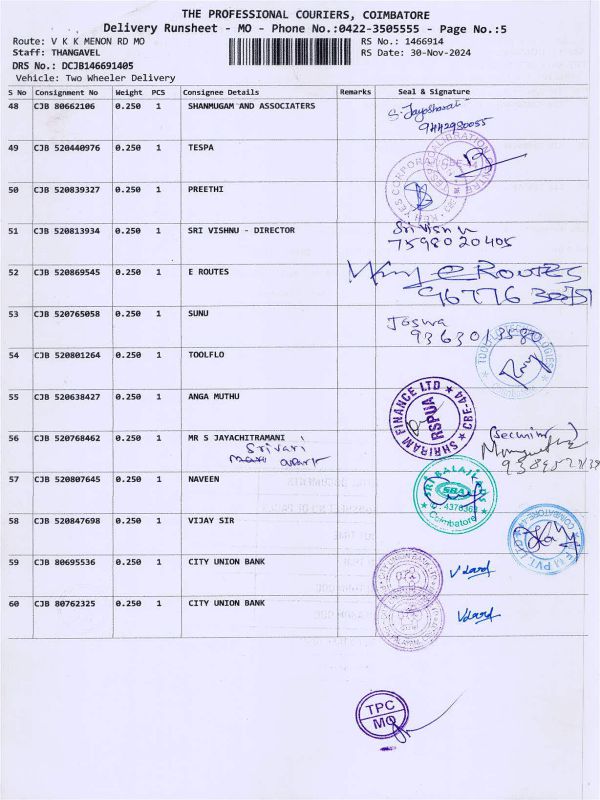 THE PROFESSIONAL COURIERS, COIMBATORE
Delivery Runsheet - MO - Phone No.:0422-3505555 - Page No.:5
Route: V K K MENON RD MO
RS No.: 1466914
Staff: THANGAVEL
RS Date: 30-Nov-2024
DRS No.: DCJB146691405
Vehicle: Two Wheeler Delivery
S No Consignment No Weight PCS Consignee Details Remarks Seal & Signature
48 CJB 80662106 0.250 1 SHANMUGAM AND ASSOCIATERS
9442980055
49 CJB 520440976 0.250 1 TESPA
50 CJB 520839327 0.250 1 PREETHI
51 CJB 520813934 0.250 1 SRI VISHNU - DIRECTOR
7598020405
52 CJB 520869545 0.250 1 E ROUTES
E ROUTES
53 CJB 520765058 0.250 1 SUNU
54 CJB 520801264 0.250 1 TOOLFLO
55 CJB 520638427 0.250 1 ANGA MUTHU
SHRIRAM FINANCE LTD ★ CBE-44 ★
RSPUA
56 CJB 520768462 0.250 1 MR S JAYACHITRAMANI
Srivari
57 CJB 520807645 0.250 1 NAVEEN
SRI BALAJI
SBA
Coimbatore
58 CJB 520847698 0.250 1 VIJAY SIR
59 CJB 80695536 0.250 1 CITY UNION BANK
60 CJB 80762325 0.250 1 CITY UNION BANK
TPC
MO